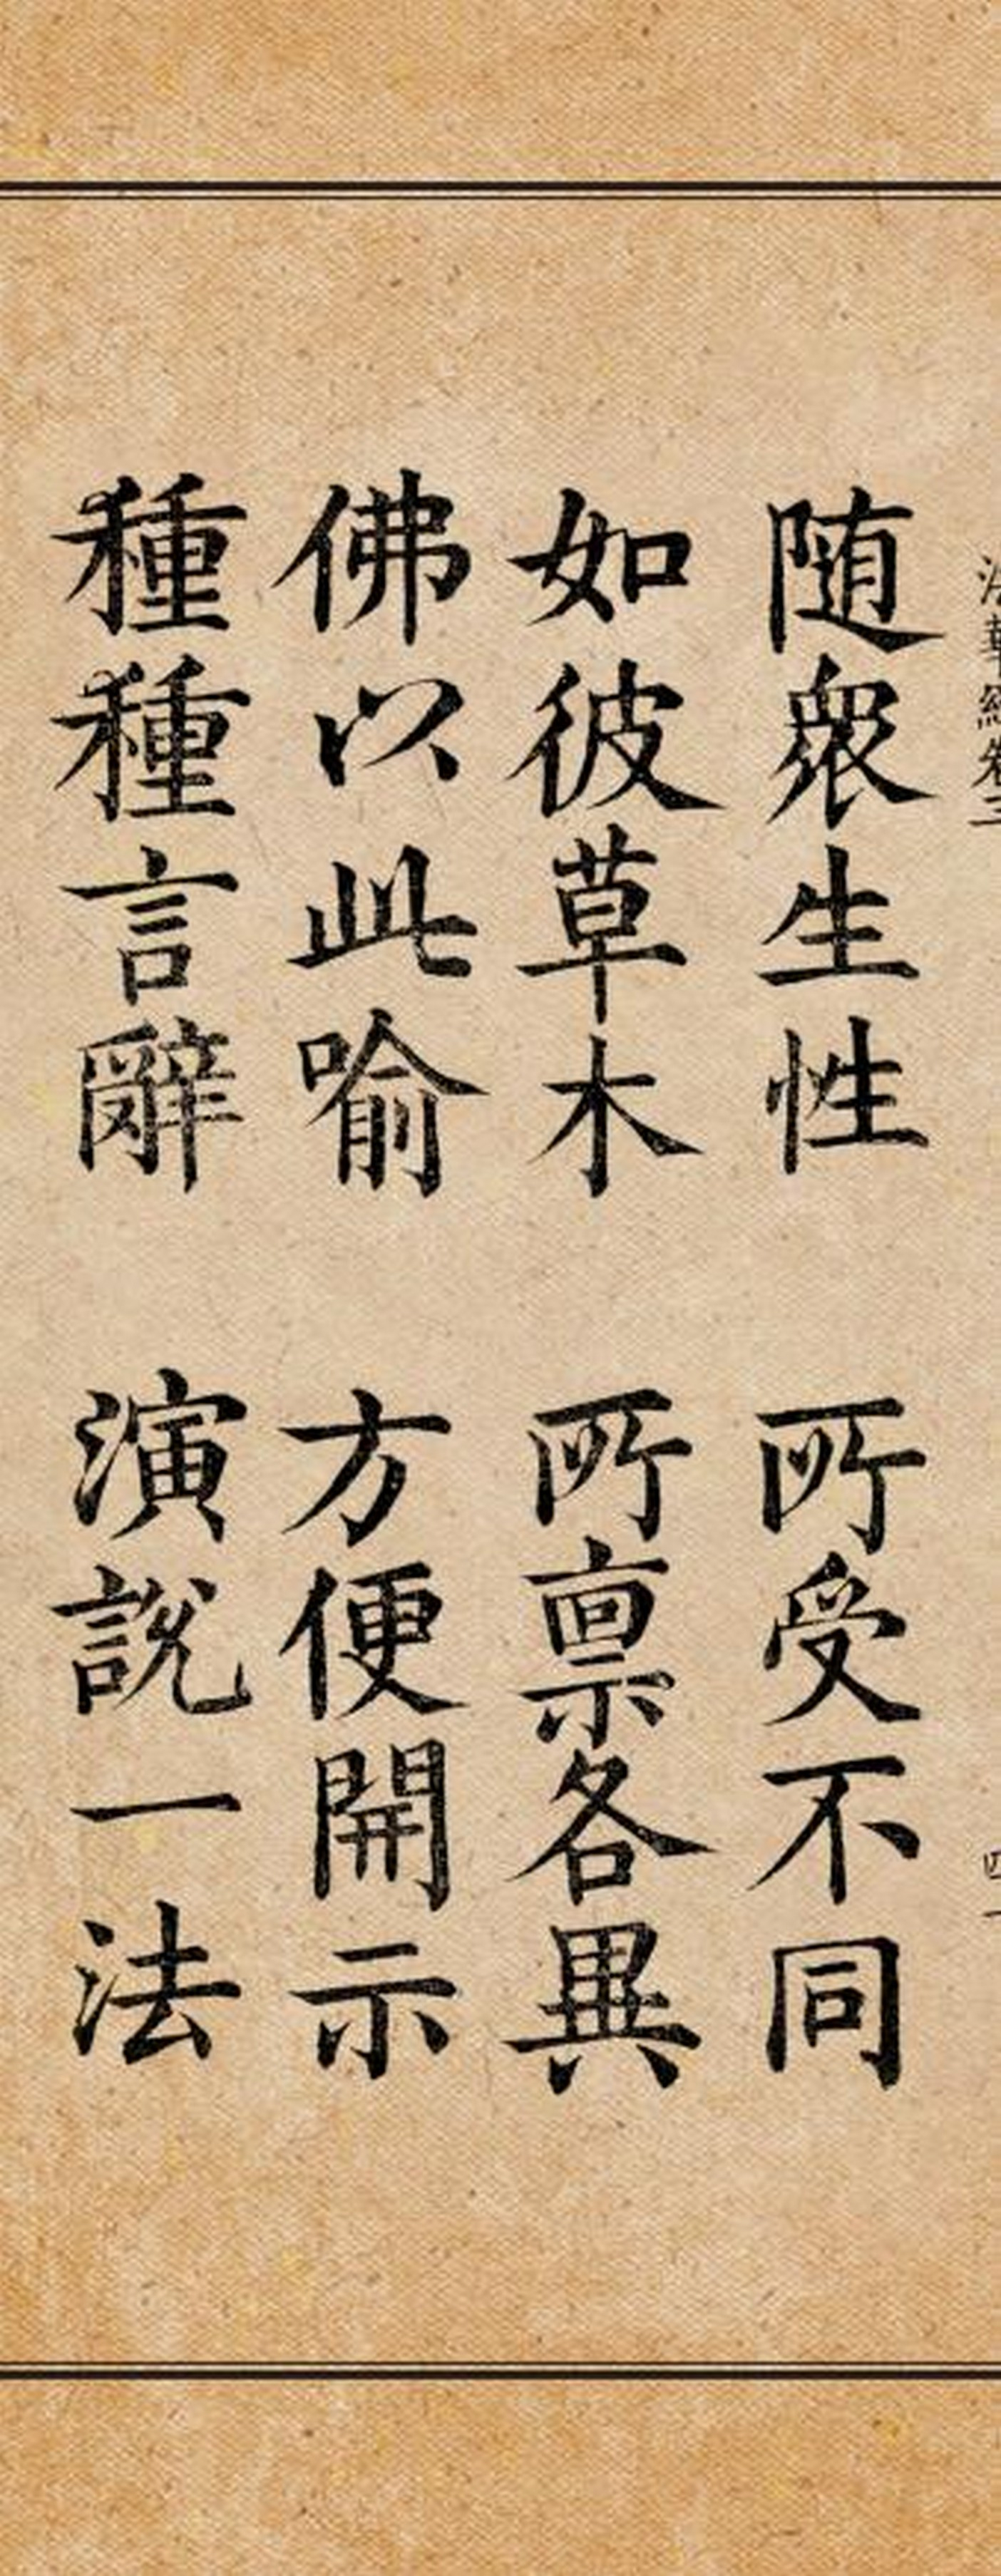 法華經卷三 四一
随衆生性 所受不同
如彼草木 所禀各異
佛以此喻 方便開示
種種言辭 演說一法